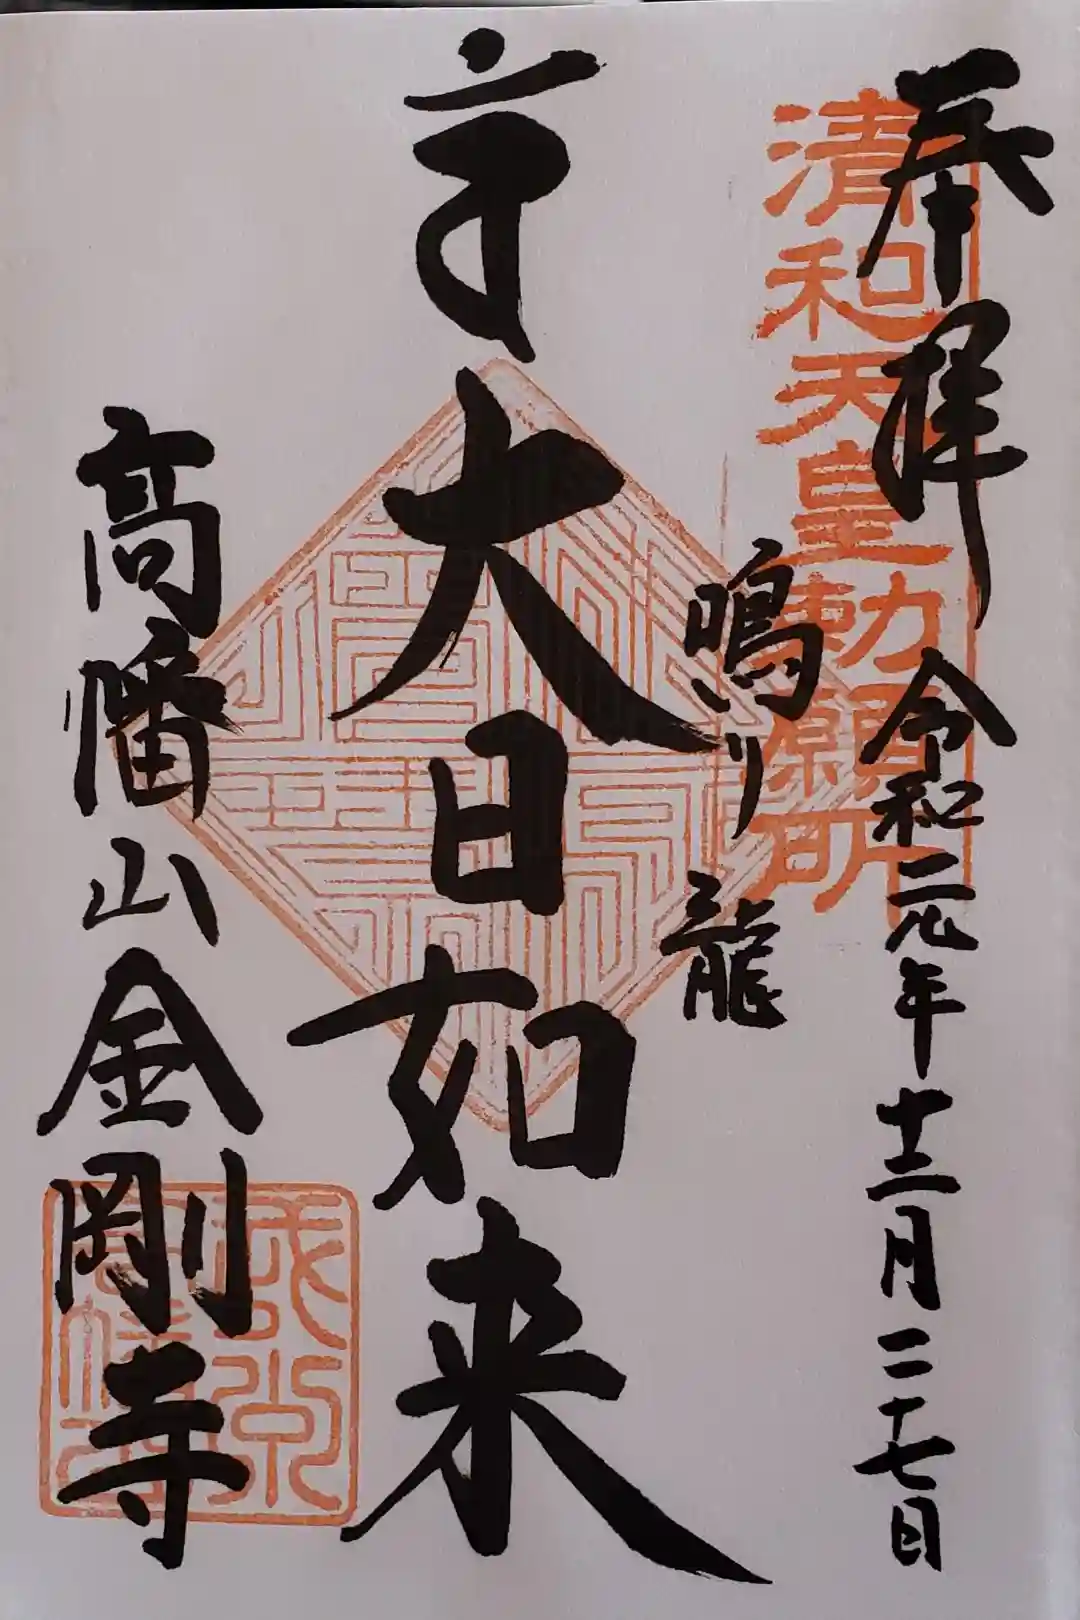 奉拝
令和二元年十二月二十七日
清和天皇勅願所
鳴り龍
大日如来
高幡山金剛寺